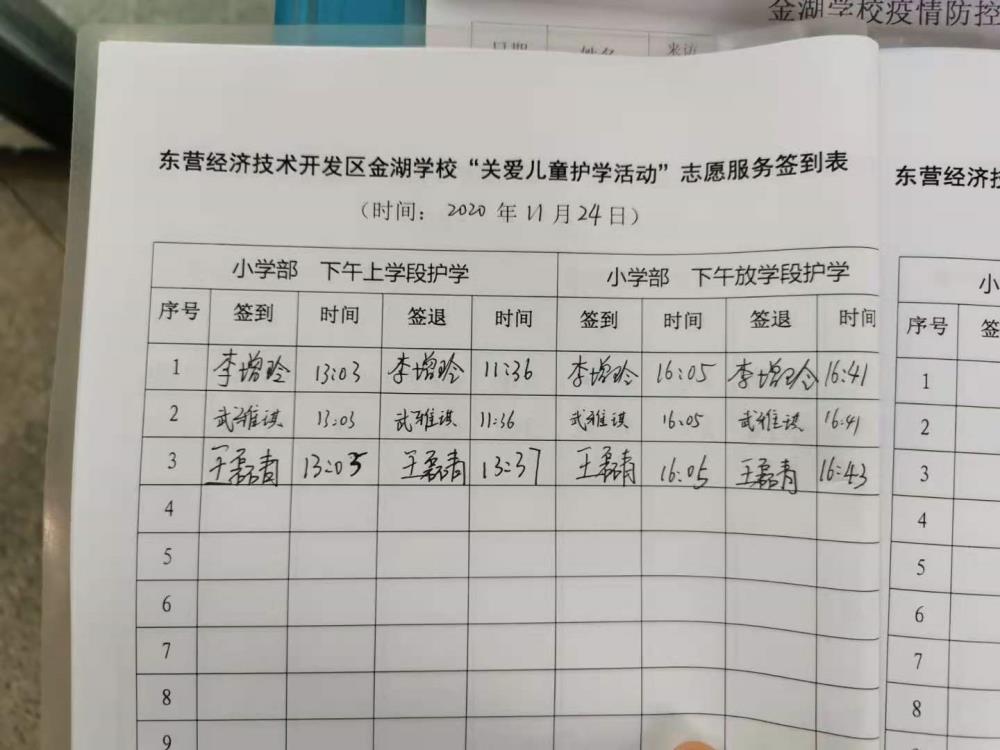 金湖学校疫情防控
日期 姓名 来访
东营经济技术开发区金湖学校“关爱儿童护学活动”志愿服务签到表
（时间： 2020 年 11 月 24 日）
小学部 下午上学段护学 小学部 下午放学段护学
序号 签到 时间 签退 时间 签到 时间 签退 时间
1 李增玲 13:03 李增玲 11:36 李增玲 16:05 李增玲 16:41
2 武雅琪 13:03 武雅琪 11:36 武雅琪 16:05 武雅琪 16:41
3 王磊青 13:05 王磊青 13:37 王磊青 16:05 王磊青 16:43
4
5
6
7
8
9
东营经济技
小
序号 签
1
2
3
4
5
6
7
8